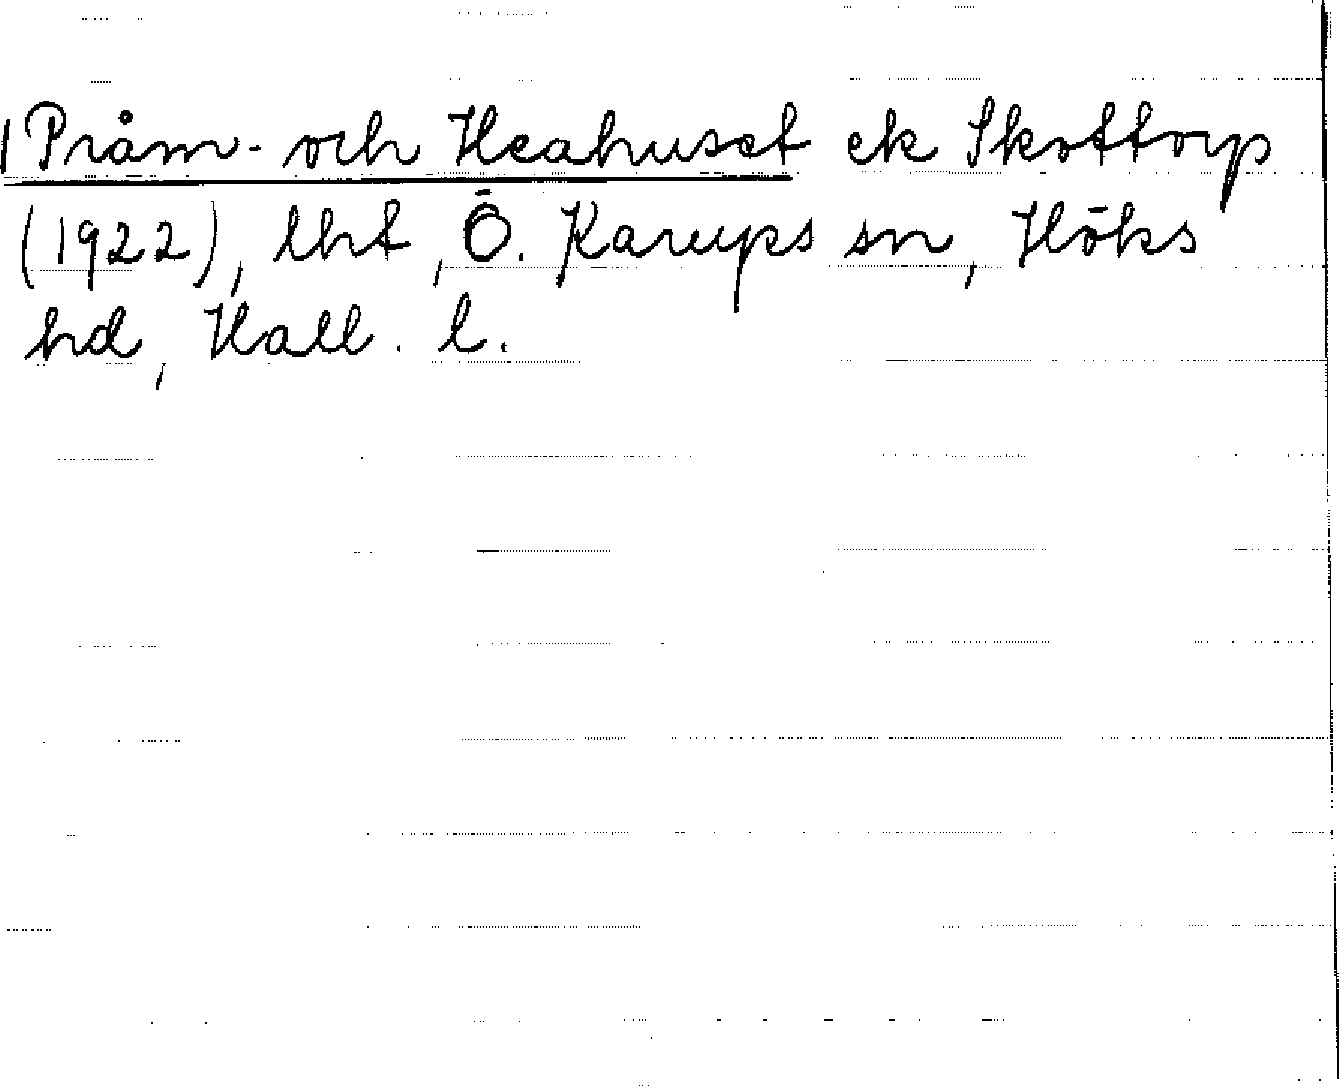 Pråm- och Heahuset ek Skottorp
(1922), lht, Ö. Karups sn, Höks
hd, Hall. l.